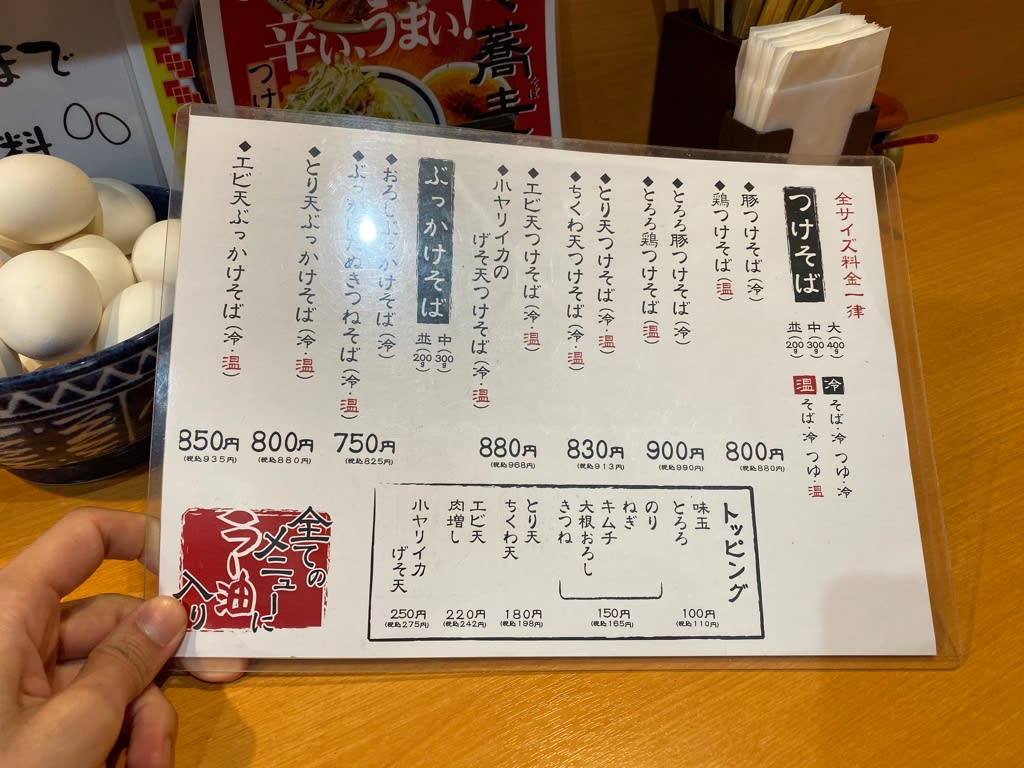 まで
料
辛い、うまい!
蕎麦
そば
つけ
全サイズ料金一律
つけそば
大(400g)
中(300g)
並(200g)
冷 そば・冷 つゆ・冷
温 そば・冷 つゆ・温
◆豚つけそば(冷)
◆鶏つけそば(温)
800円
(税込880円)
◆とろろ豚つけそば(冷)
◆とろろ鶏つけそば(温)
900円
(税込990円)
◆とり天つけそば(冷・温)
◆ちくわ天つけそば(冷・温)
830円
(税込913円)
◆エビ天つけそば(冷・温)
◆小ヤリイカの
げそ天つけそば(冷・温)
880円
(税込968円)
ぶっかけそば
中(300g)
並(200g)
◆おろしぶっかけそば(冷)
◆ぶっかけたぬきつねそば(冷・温)
750円
(税込825円)
◆とり天ぶっかけそば(冷・温)
800円
(税込880円)
◆エビ天ぶっかけそば(冷・温)
850円
(税込935円)
トッピング
味玉
とろろ
100円
(税込110円)
のり
ねぎ
キムチ
大根おろし
きつね
150円
(税込165円)
とり天
ちくわ天
180円
(税込198円)
エビ天
肉増し
220円
(税込242円)
小ヤリイカ
げそ天
250円
(税込275円)
全ての
メニューに
ラー油
入り